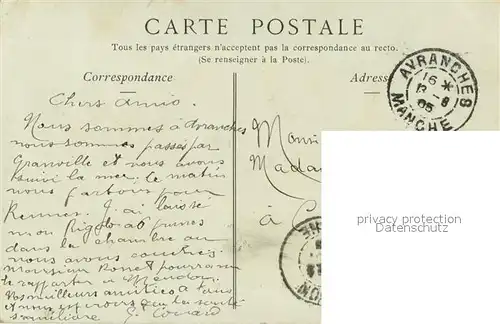 CARTE POSTALE
Tous les pays étrangers n'acceptent pas la correspondance au recto.
(Se renseigner à la Poste).
Correspondance
Adresse
AVRANCHES
16 *
MANCHE
Chers Amis.
Nous sommes à Avranches
nous sommes passés par
Granville et nous avons
suivi la mer. le matin
nous partons pour
Rennes. J'ai laissé
mon
dans la chambre où
nous avons couché.
monsieur pourra
le rapporter à
Nos meilleurs amitiés à tous
la santé
G.
Mada
à
privacy protection